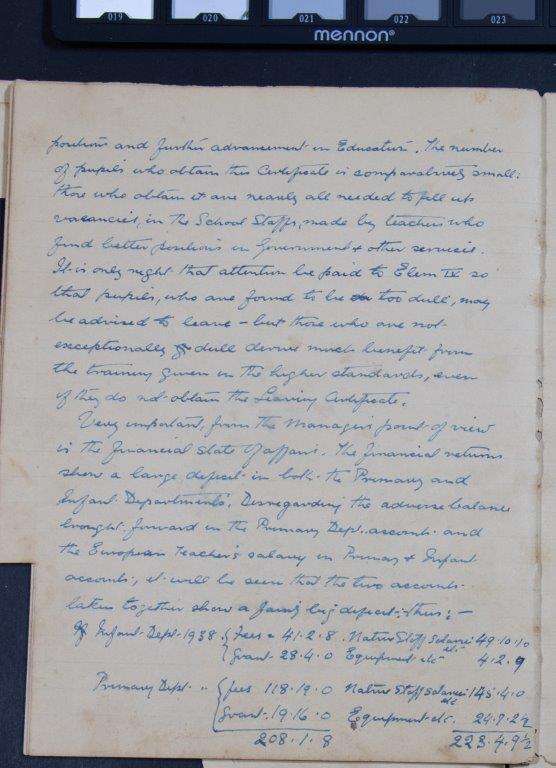 019 020 021 022 023
mennon®
positions and further advancement in Education. The number
of pupils who obtain this Certificate is comparatively small:
those who obtain it are nearly all needed to fill up
vacancies, in the School Staffs, made by teachers who
find better positions in Government & other services.
It is only right that attention be paid to Elem IV so
that pupils, who are found to be too dull, may
be advised to leave – but those who are not
exceptionally dull derive much benefit from
the training given in the higher standards, even
if they do not obtain the Leaving Certificate.
Very important, from the Managers point of view
is the financial state of affairs. The financial returns
show a large deficit in both the Primary and
Infant Departments. Disregarding the adverse balance
brought forward in the Primary Dept. accounts and
the European teacher's salary in Primary & Infant
accounts, it will be seen that the two accounts
taken together show a fairly big deficit; thus: –
Infant Dept. 1938 { Fees = 41.2.8. Native Staff Salaries etc. 49.10.10
Grant 28.4.0 Equipment etc 4.2.9
Primary Dept. " { fees 118.19.0 Native Staff Salaries etc 145.4.0
Grant. 19.16.0 Equipment etc. 24.7.2½
208.1.8 223.4.9½